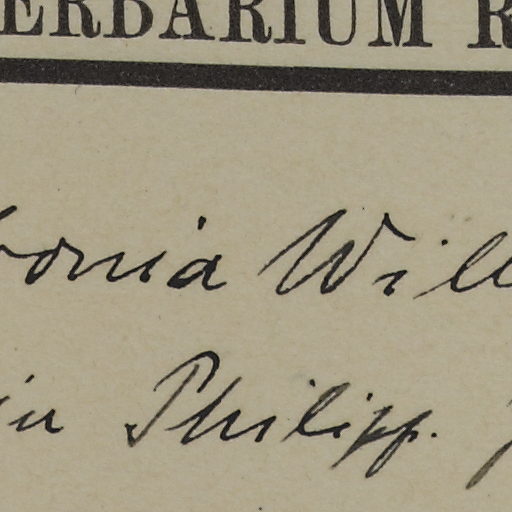 ERBARIUM R
bonia Will
in Philipp.